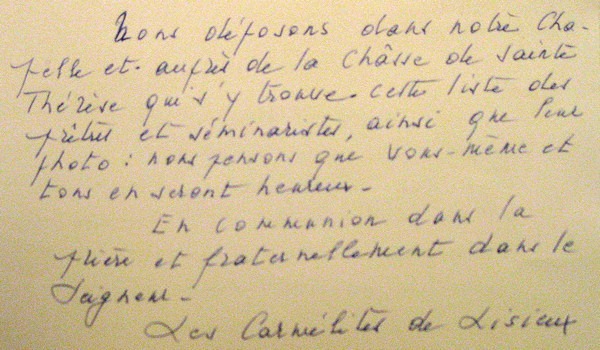 Nous déposons dans notre Cha-
pelle et auprès de la Châsse de sainte
Thérèse qui s'y trouve cette liste des
prêtres et séminaristes, ainsi que leur
photo : nous pensons que vous-même et
tous en seront heureux -
En communion dans la
prière et fraternellement dans le
Seigneur -
Les Carmélites de Lisieux